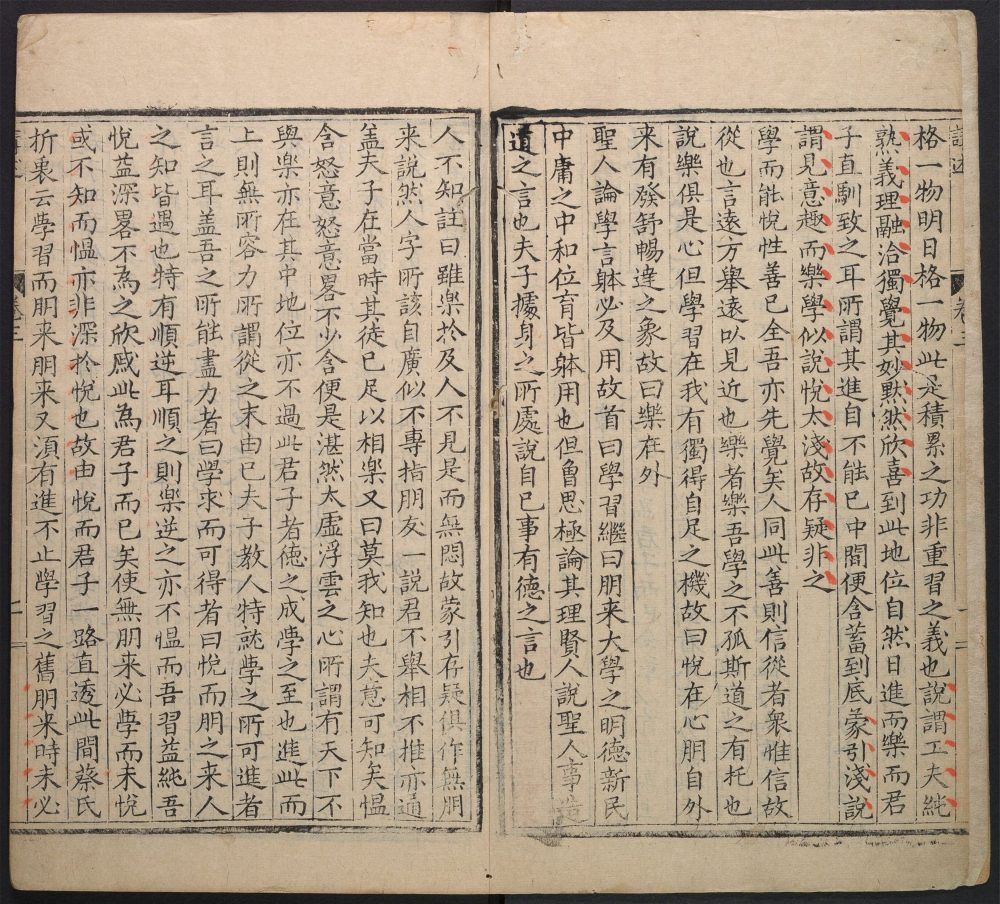 格一物明日格一物此是積累之功非重習之義也說謂工夫純
熟義理融洽獨覺其妙默然欣喜到此地位自然日進而樂而君
子直馴致之耳所謂其進自不能已中間便含蓄到底蒙引淺說
謂見意趣而樂學似說悅太淺故存疑非之
學而能悅性善已全吾亦先覺矣人同此善則信從者衆惟信故
從也言遠方舉遠以見近也樂者樂吾學之不孤斯道之有托也
說樂俱是心但學習在我有獨得自足之機故曰悅在心朋自外
來有發舒暢達之象故曰樂在外
聖人論學言躰必及用故首曰學習繼曰朋来大學之明德新民
中庸之中和位育皆躰用也但魯思極論其理賢人說聖人事造
道之言也夫子據身之所處說自已事有德之言也
人不知註曰雖樂於及人不見是而無悶故蒙引存疑俱作無朋
来說然人字所該自廣似不專指朋友一說君不舉相不推亦通
盖夫子在當時其徒已足以相楽又曰莫我知也夫意可知矣愠
含怒意怒意畧不少含便是湛然太虛浮雲之心所謂有天下不
與樂亦在其中地位亦不過此君子者德之成學之至也進此而
上則無所容力所謂從之末由已夫子教人特就學之所可進者
言之耳盖吾之所能盡力者曰學求而可得者曰悅而朋之来人
之知皆遇也特有順逆耳順之則樂逆之亦不愠而吾習益純吾
悅益深畧不為之欣慼此為君子而已矣使無朋来必學而未悅
或不知而愠亦非深於悅也故由悅而君子一路直透此間蔡氏
折衷云學習而朋来朋来又湏有進不止學習之舊朋来時未必
卷三
二